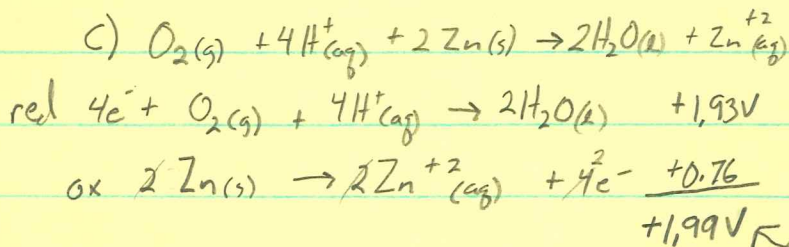 C) O₂(g) + 4H⁺(aq) + 2 Zn(s) → 2H₂O(l) + Zn⁺²(aq)
red 4e⁻ + O₂(g) + 4H⁺(aq) → 2H₂O(l) +1,93V
ox 2 Zn(s) → 2Zn⁺²(aq) + 4²e⁻ +0.76
+1,99V